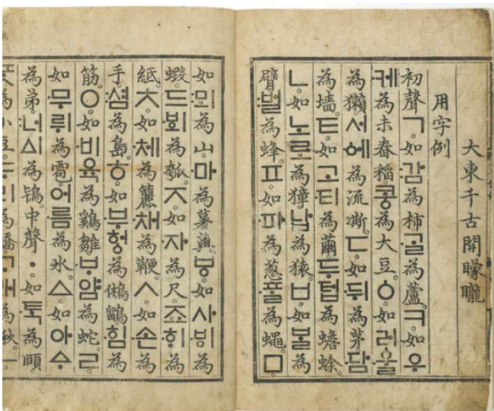 大東千古開矇矓
用字例
初聲ㄱ。如감為柿。ᄀᆞᆯ為蘆。ㅋ。如우
케為未舂稻。코ᇰ為大豆。ㆁ。如러ᅌᅮᆯ
為獺。서ᅌᅦ為流凘。ㄷ。如뒤為茅。담
為墻。ㅌ。如고티為繭。두텁為蟾蜍。
ㄴ。如노로為獐。납為猿。ㅂ。如ᄇᆞᆯ為
臂。벌為蜂。ㅍ。如파為葱。ᄑᆞᆯ為蠅。ㅁ。
如뫼為山。마為薯藇。ㅸ。如사ᄫᅵ為
蝦。드ᄫᅴ為瓠。ㅈ。如자為尺。죠ᄒᆡ為
紙。ㅊ。如체為籭。채為鞭。ㅅ。如손為
手。셤為島。ㅎ。如부허ᇰ為鵂鶹。힘為
筋。ㅇ。如비육為鷄雛。ᄇᆞ얌為蛇。ㄹ。
如무뤼為雹。어름為氷。ㅿ。如아ᅀᆞ
為弟。너ᅀᅵ為鴇。中聲ㆍ。如ᄐᆞᆨ為頤。
ᄑᆞᆺ為小豆。ᄃᆞ리為橋。ᄀᆞ래為楸。